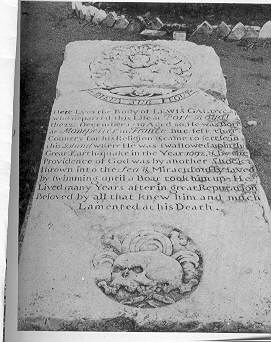 Here Lyes the Body of LEWIS GALDY
who departed this Life at Port Royal
the 22. December 1739 aged 80. He was Born
at Montpelier in France but left that
Country for his Religion & came to settle in
this Island where He was swallowed up in the
Great Earthquake in the Year 1692 & By the
Providence of God was by another Shock
thrown into the Sea & Miraculously saved
by swimming until a Boat took him up: He
Lived many Years after in great Reputation
Beloved by all that knew him and much
Lamented at his Death.